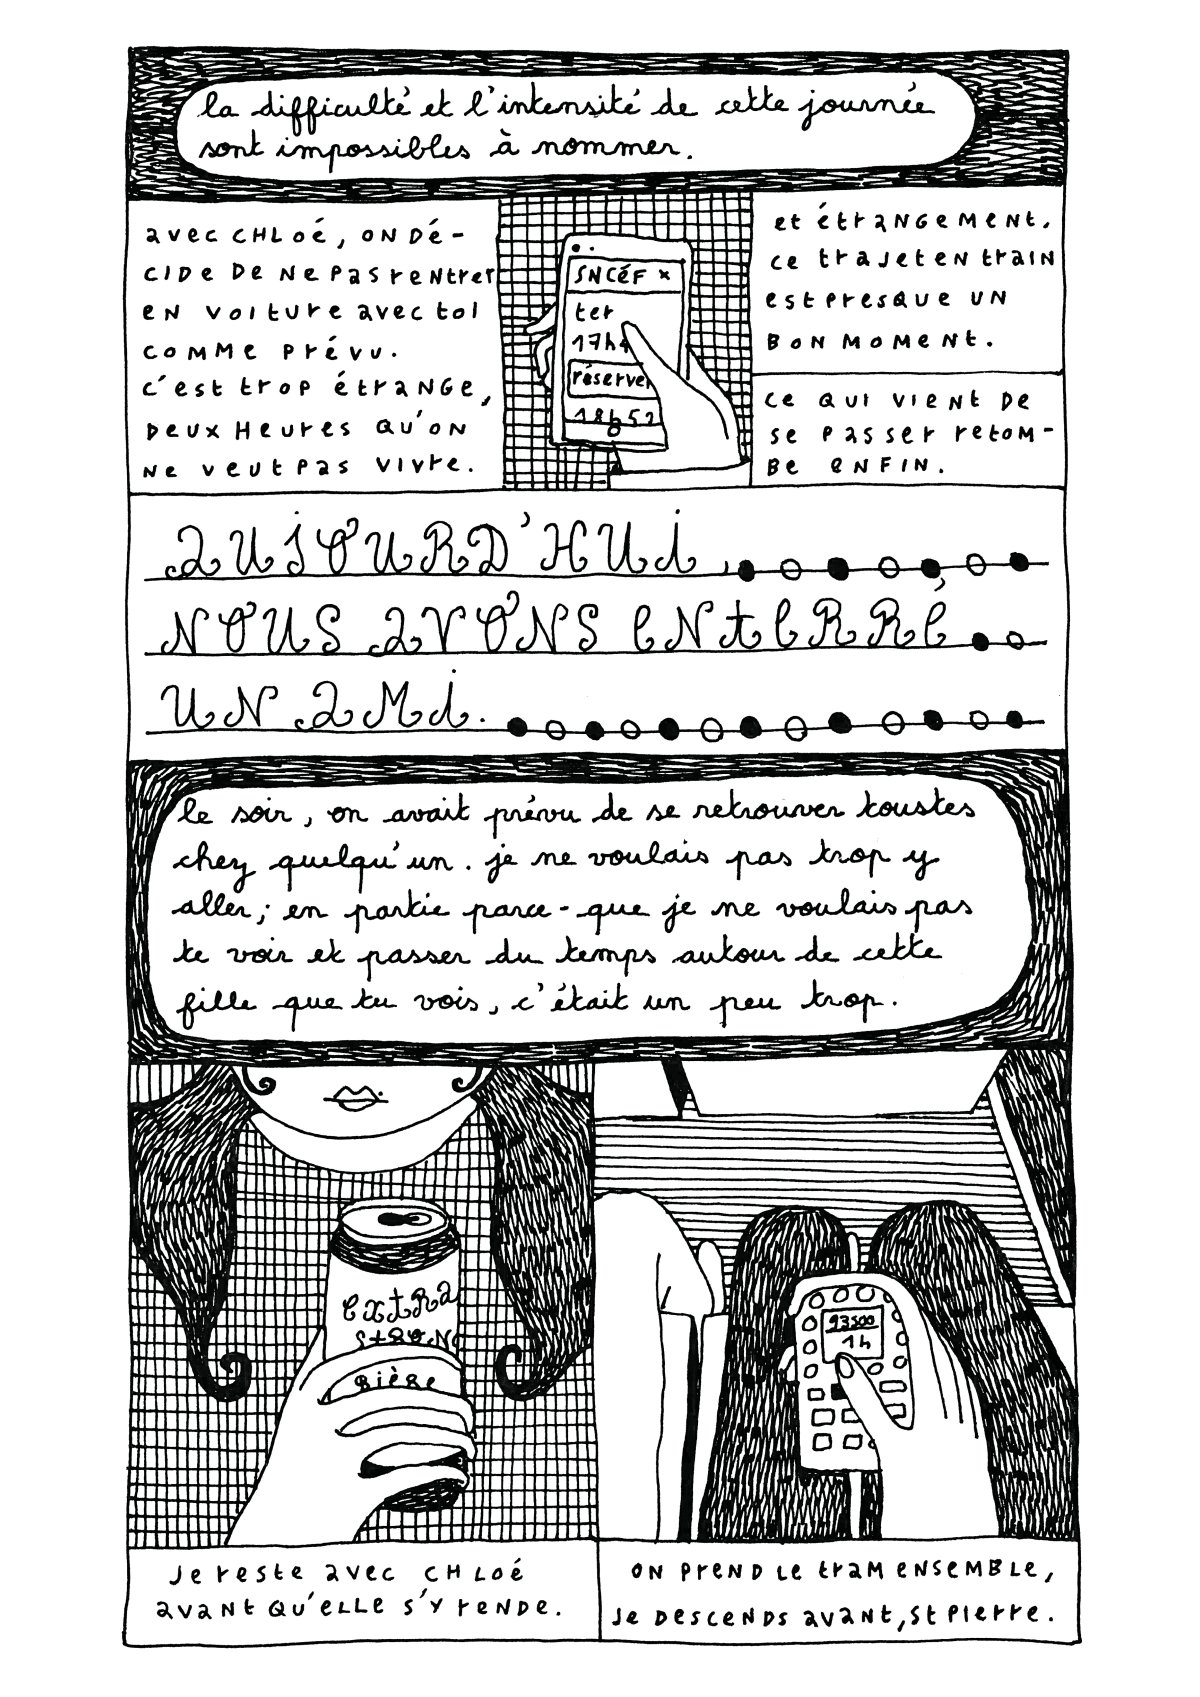 la difficulté et l'intensité de cette journée
sont impossibles à nommer.
avec CHLOé, ON Dé-
CIDE DE NE Pas rentrer
en voiture avec toi
comme Prévu.
c'est trop étrange,
Deux Heures qu'on
ne veut pas vivre.
SNCéF ×
ter
17h4
réserver
18h52
et étrangement,
ce trajet en train
est presque un
bon moment.
ce qui vient de
se passer retom-
be enfin.
AUJOURD'HUI,
NOUS AVONS ENTERRÉ
UN AMI.
le soir, on avait prévu de se retrouver toustes
chez quelqu'un. je ne voulais pas trop y
aller; en partie parce-que je ne voulais pas
te voir et passer du temps autour de cette
fille que tu vois, c'était un peu trop.
extRa
StRoNG
BièRe
93500
1h
Je reste avec CHLoé
avant qu'elle s'y rende.
on prend le tram ensemble,
je descends avant, St Pierre.